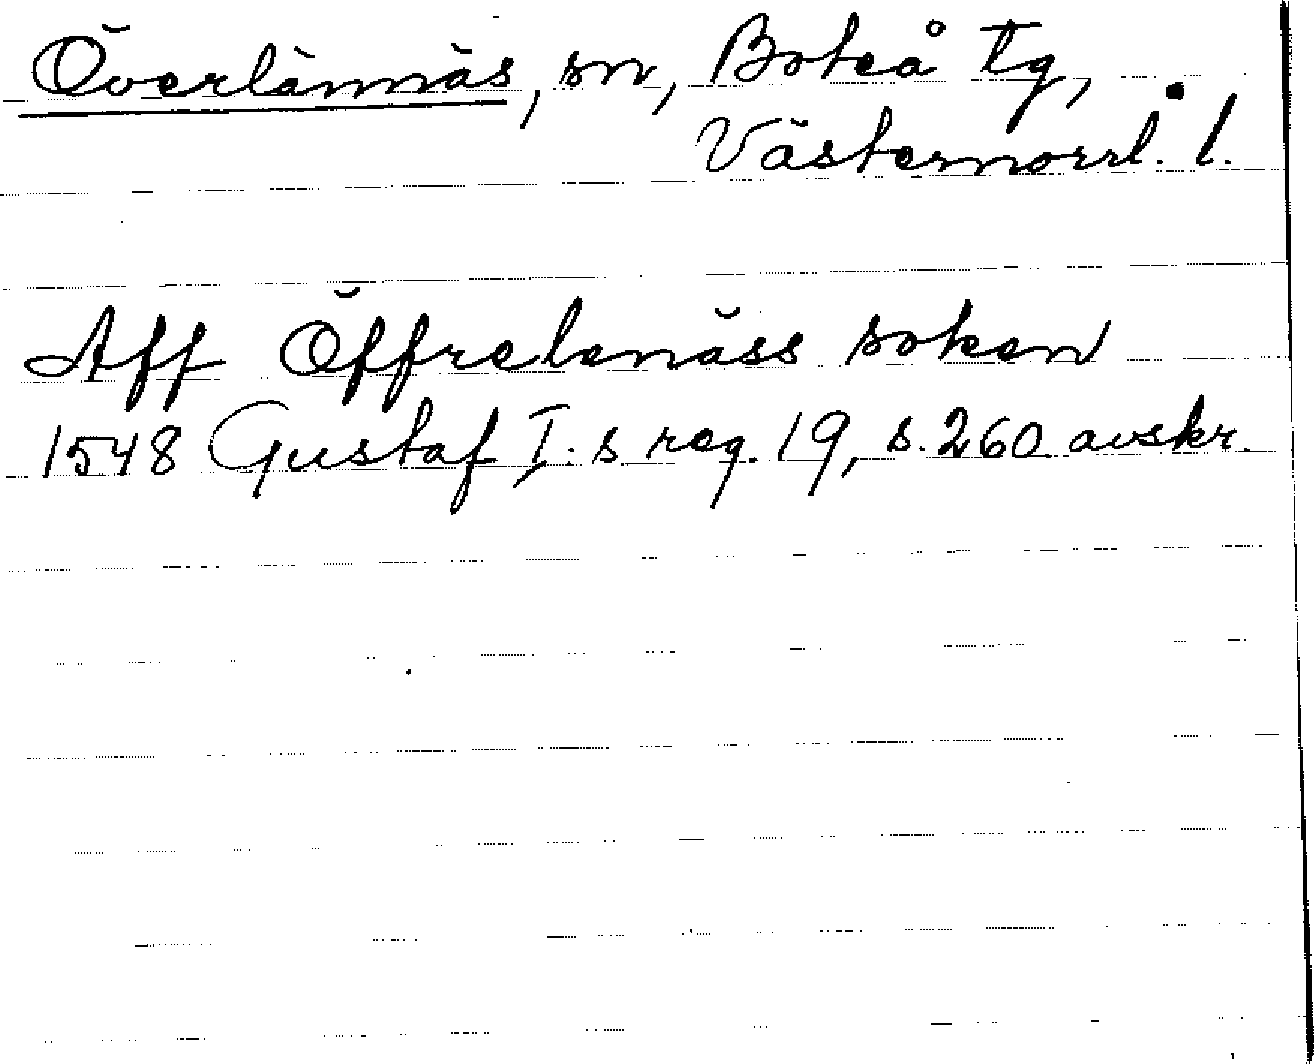 Överlännäs, sn, Boteå tg,
Västernorrl. l.
Aff Öffrelenäss soken
1548 Gustaf I:s reg. 19, s. 260 avskr.